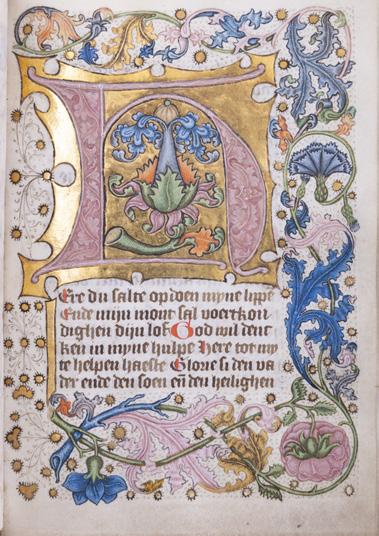 H
Ere du salte op doen myne lippe
Ende mijn mont sal voertkon
dighen dijn lof God wil denc
ken in myne hulpe Here tot my
te helpen haeste Glorie si den va
der ende den soen eñ den heilighen